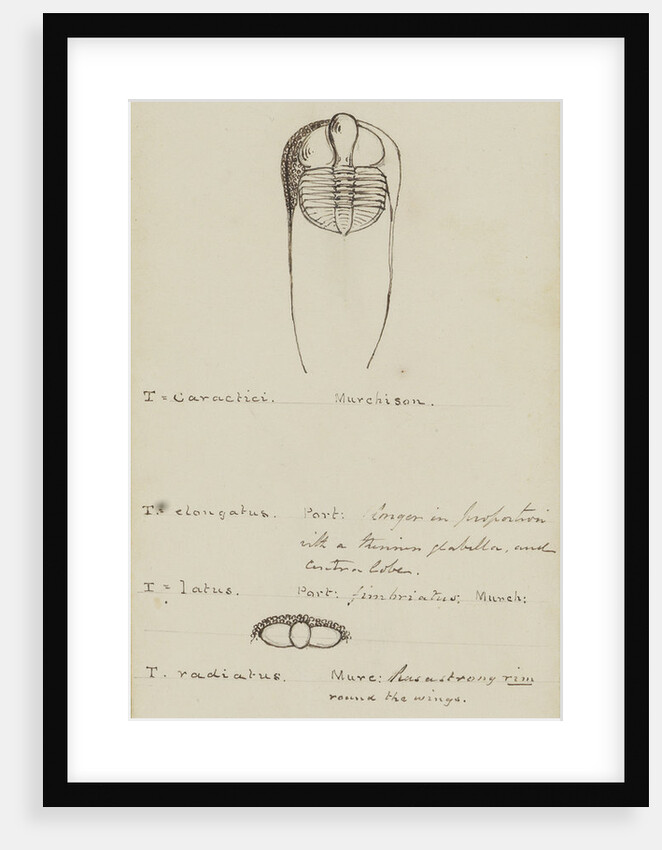 T = Caractici. Murchison.
T. = elongatus. Port: longer in proportion
with a thinner glabella, and
central lobe.
T = latus. Port: fimbriatus; Murch:
T. radiatus. Murc: has a strong rim
round the wings.